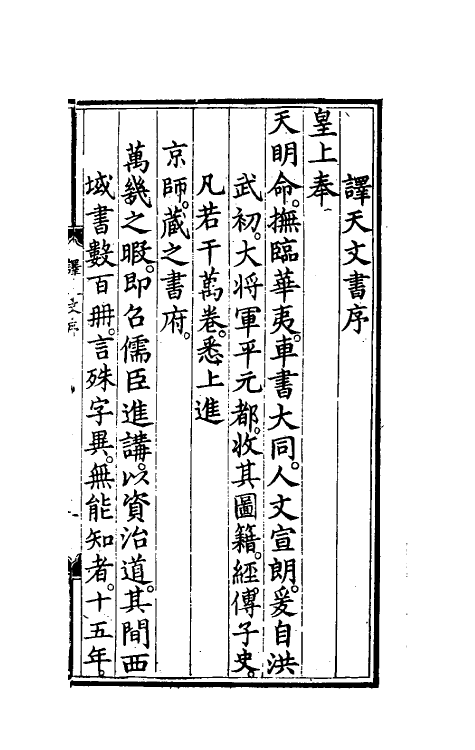 譯天文書序
皇上奉
天明命。撫臨華夷。車書大同。人文宣朗。爰自洪
武初。大將軍平元都。收其圖籍。經傳子史。
凡若干萬卷。悉上進
京師。藏之書府。
萬幾之暇。即召儒臣進講。以資治道。其間西
域書數百冊。言殊字異。無能知者。十五年。
譯 文序